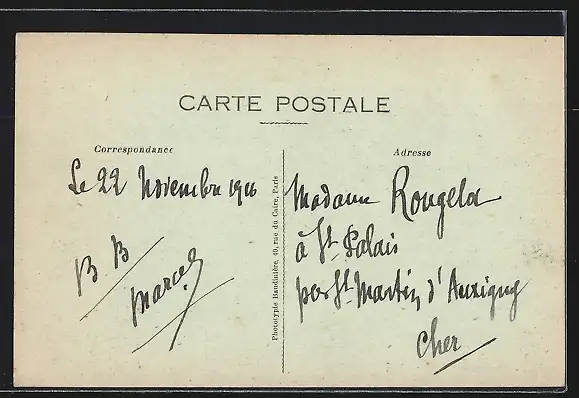 CARTE POSTALE
Correspondance
Le 22 Novembre 1916
B B
Marcel
Phototypie Baudinière, 40, rue du Caire, Paris
Adresse
Madame Rougelet
à St. Palais
par St. Martin d'Auxigny
Cher